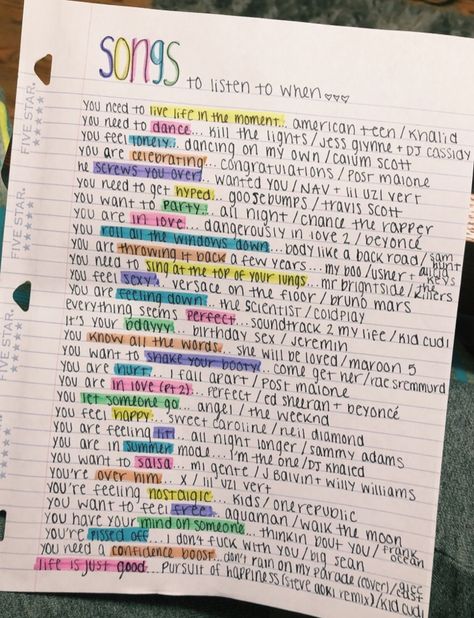 songs
to listen to when...♡♡♡
FIVE STAR.
FIVE STAR.
FIVE STAR.
you need to live life in the moment... american teen / khalid
you need to dance... kill the lights / jess glynne + DJ cassidy
you feel lonely... dancing on my own / calum scott
you are celebrating... congratulations / post malone
he screws you over... wanted you / NAV + lil uzi vert
you need to get hyped... goosebumps / travis scott
you want to party... all night / chance the rapper
you are in love... dangerously in love 2 / beyoncé
you roll all the windows down... body like a back road / sam hunt
you are throwing it back a few years... my boo / usher + alicia keys
you need to sing at the top of your lungs... mr brightside / the killers
you feel sexy... versace on the floor / bruno mars
you are feeling down... the scientist / coldplay
everything seems perfect... soundtrack 2 my life / kid cudi
it's your bdayyy... birthday sex / jeremih
you know all the words... she will be loved / maroon 5
you want to shake your booty... come get her / rae sremmurd
you are hurt... I fall apart / post malone
you are in love (pt 2)... perfect / ed sheeran + beyoncé
you let someone go... angel / the weeknd
you feel happy... sweet caroline / neil diamond
you are feeling lit... all night longer / sammy adams
you are in summer mode... I'm the one / DJ khaled
you want to salsa... mi gente / J Balvin + willy williams
you're over him... X / lil uzi vert
you're feeling nostalgic... kids / onerepublic
you want to feel free... aquaman / walk the moon
you have your mind on someone... thinkin bout you / frank ocean
you're pissed off... I don't fuck with you / big sean
you need a confidence boost... don't rain on my parade (cover) / glee cast
life is just good... pursuit of happiness (steve aoki remix) / kid cudi